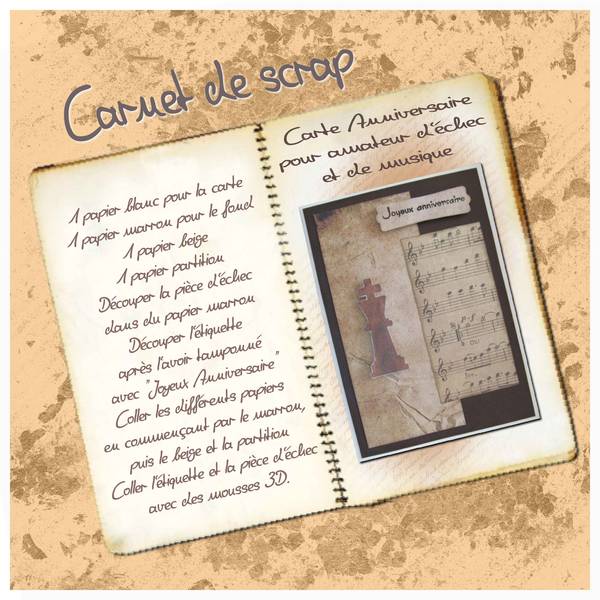 Carnet de scrap
1 papier blanc pour la carte
1 papier marron pour le fond
1 papier beige
1 papier partition
Découper la pièce d'échec
dans du papier marron
Découper l'étiquette
après l'avoir tamponné
avec "Joyeux Anniversaire"
Coller les différents papiers
en commençant par le marron,
puis le beige et la partition
Coller l'étiquette et la pièce d'échec
avec des mousses 3D.
Carte Anniversaire
pour amateur d'échec
et de musique
Joyeux anniversaire